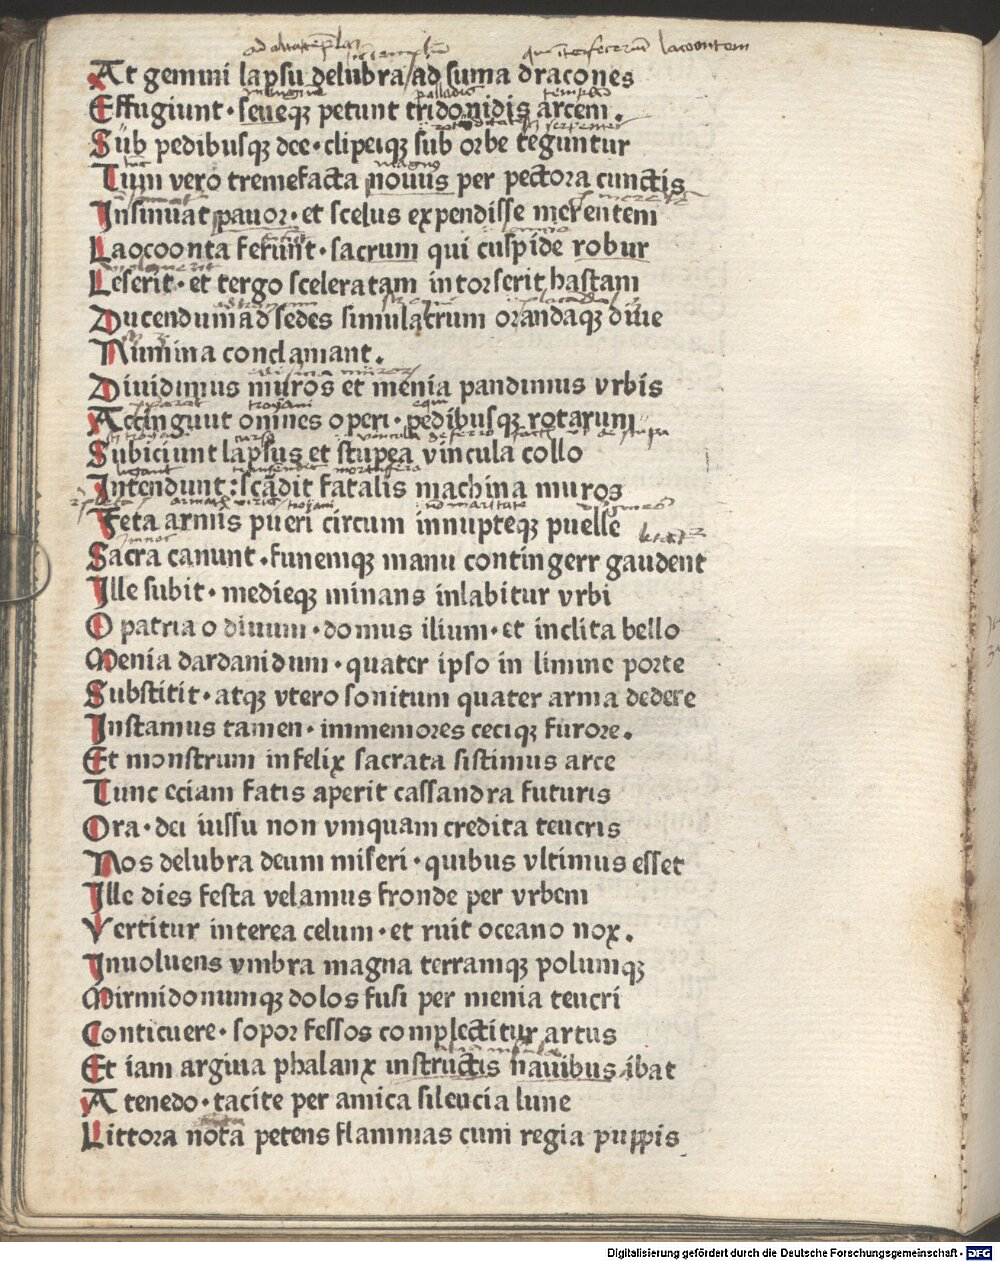 qui interfecerunt lacoontem
At gemini lapsu delubra ad suma dracones
Effugiunt · seueqꝫ petunt tridonidis arcem.
palladis templum
Sub pedibusqꝫ dee · clipeiqꝫ sub orbe teguntur
Tum vero tremefacta nouus per pectora cunctis
magnus
Insinuat pauor · et scelus expendisse merentem
Laocoonta ferunt · sacrum qui cuspide robur
Leserit · et tergo sceleratam intorserit hastam
Ducendum ad sedes simulacrum orandaqꝫ diue
Numina conclamant.
Diuidimus muros et menia pandimus vrbis
troyani equi
Accingunt omnes operi · pedibusqꝫ rotarum
Subiciunt lapsus et stupea vincula collo
mortifera
Intendunt : scādit fatalis machina muros
troyani
Feta armis pueri circum innupteqꝫ puelle
Sacra canunt · funemqꝫ manu contingerr gaudent
Ille subit · medieqꝫ minans inlabitur vrbi
O patria o diuum · domus ilium · et inclita bello
Menia dardanidum · quater ipso in limine porte
Substitit · atqꝫ vtero sonitum quater arma dedere
Instamus tamen · immemores ceciqꝫ furore.
Et monstrum infelix sacrata sistimus arce
Tunc eciam fatis aperit cassandra futuris
Ora · dei iussu non vmquam credita teucris
Nos delubra deum miseri · quibus vltimus esset
Ille dies festa velamus fronde per vrbem
Vertitur interea celum · et ruit oceano nox.
Inuoluens vmbra magna terramqꝫ polumqꝫ
Mirmidonumqꝫ dolos fusi per menia teucri
Conticuere · sopor fessos complectitur artus
Et iam argiua phalanx instructis nauibus ibat
A tenedo · tacite per amica silencia lune
Littora nota petens flammas cum regia puppis
Digitalisierung gefördert durch die Deutsche Forschungsgemeinschaft - DFG